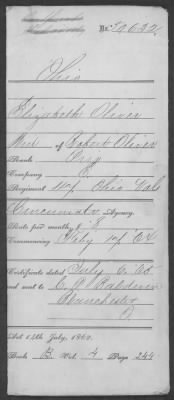 No. 59632
Ohio
Elizabeth Oliver
Wid of Robert Oliver
Rank Corp
Company
Regiment 11th Ohio Vols
Cincinnati Agency.
Rate per month, $ 8
Commencing
Certificate dated July 6. 65
and sent to
Baldwin
Manchester
O.
Act 14th July, 1862.
Book B Vol. 4 Page 244